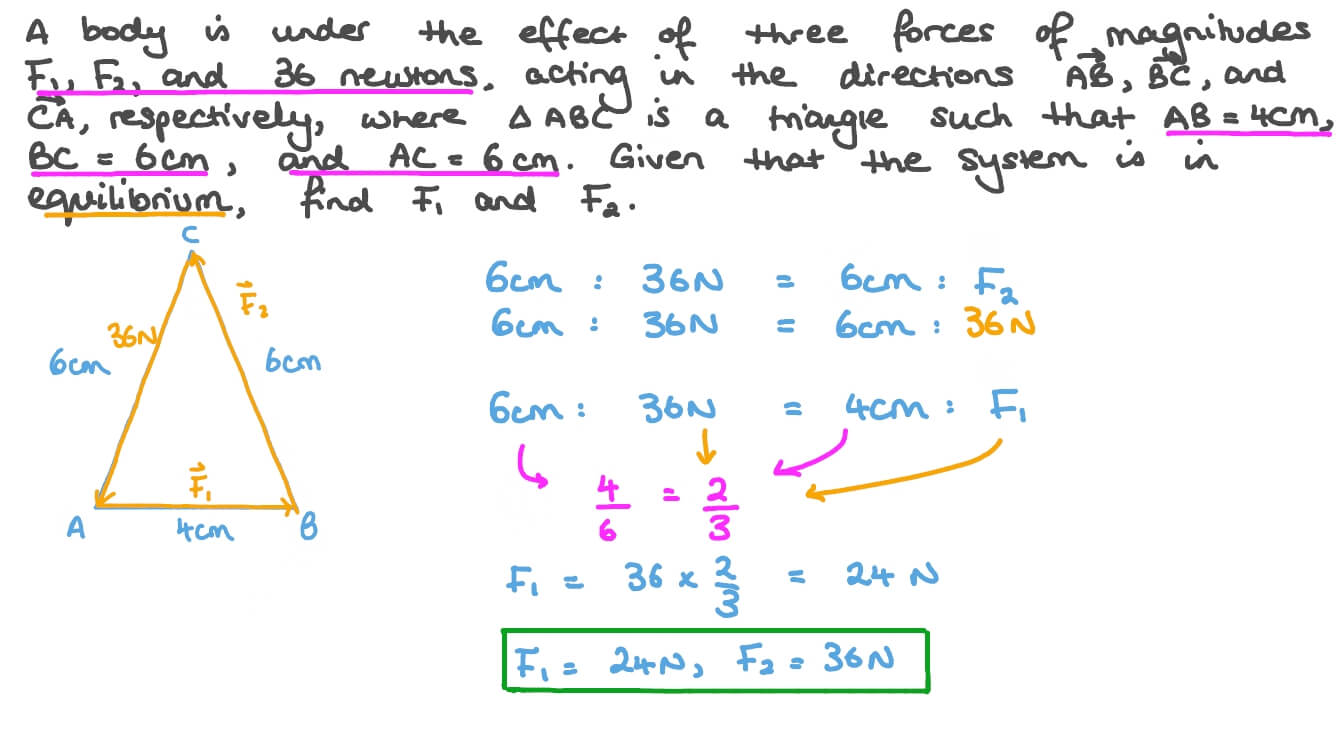 A body is under the effect of three forces of magnitudes
F₁, F₂, and 36 newtons, acting in the directions AB, BC, and
CA, respectively, where △ABC is a triangle such that AB = 4cm,
BC = 6cm, and AC = 6cm. Given that the system is in
equilibrium, find F₁ and F₂.
C
F₂
36N
6cm
6cm
F₁
A
4cm
B
6cm : 36N = 6cm : F₂
6cm : 36N = 6cm : 36N
6cm : 36N = 4cm : F₁
4/6 = 2/3
F₁ = 36 × 2/3 = 24 N
F₁ = 24N, F₂ = 36N